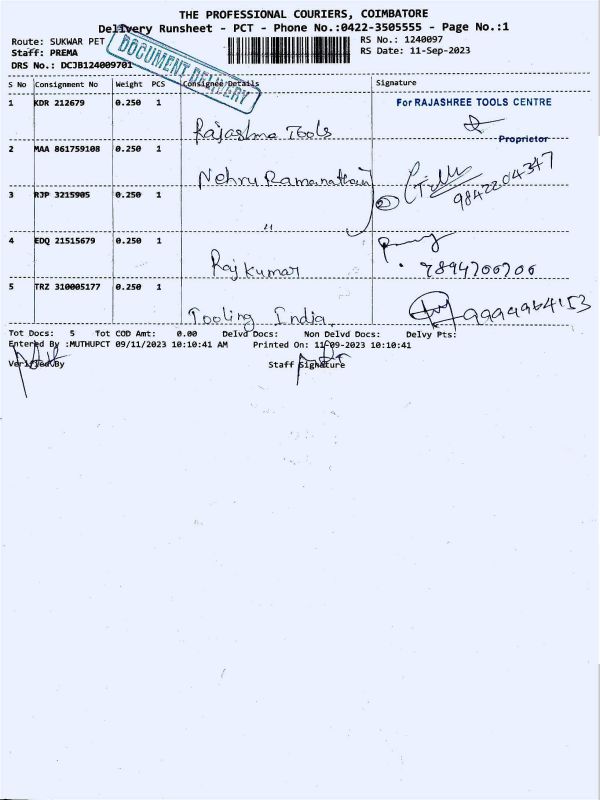 THE PROFESSIONAL COURIERS, COIMBATORE
Delivery Runsheet - PCT - Phone No.:0422-3505555 - Page No.:1
Route: SUKWAR PET
RS No.: 1240097
Staff: PREMA
RS Date: 11-Sep-2023
DRS No.: DCJB124009701
DOCUMENT DELIVERY
S No Consignment No Weight PCS Consignee Details Signature
1 KDR 212679 0.250 1 For RAJASHREE TOOLS CENTRE
Tools
Proprietor
2 MAA 861759108 0.250 1
Nehru Ramanathan
9842204347
3 RJP 3215905 0.250 1
"
4 EDQ 21515679 0.250 1
Rajkumar
7894706706
5 TRZ 310005177 0.250 1
Tooling India
9994964153
Tot Docs: 5 Tot COD Amt: 0.00 Delvd Docs: Non Delvd Docs: Delvy Pts:
Entered By :MUTHUPCT 09/11/2023 10:10:41 AM Printed On: 11-09-2023 10:10:41
Verified By Staff Signature